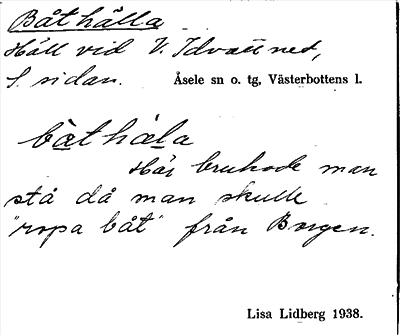 Båthälla
Häll vid V. Idvattnet,
S. sidan. Åsele sn o. tg, Västerbottens l.
båthäla
Här brukade man
stå då man skulle
"ropa båt" från Borgen.
Lisa Lidberg 1938.